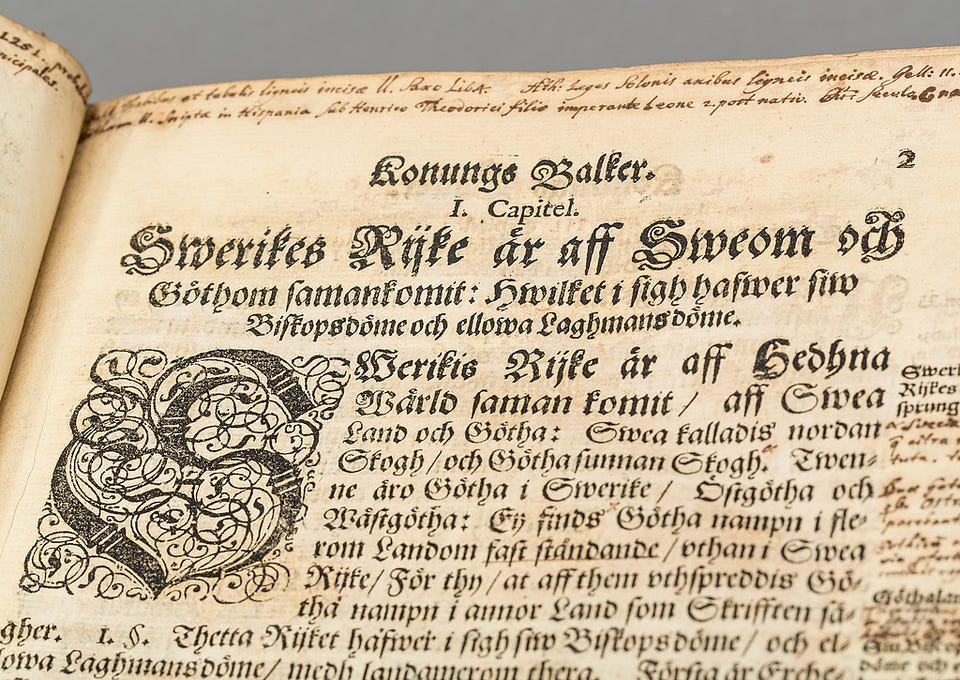 1251.
nicipales.
et tabulis ligneis incisæ ll. Saxo Lib 4. Ath: Leges Solonis axibus ligneis incisæ. Gell: 11.
ll. Scripta in Hispania sub Henrico Theodorici filio imperante Leone 2. post nativ.
2
Konungs Balker.
I. Capitel.
Swerikes Rijke är aff Sweom och
Göthom samankomit: Hwilket i sigh hafwer siw
Biskopsdöme och ellowa Laghmansdöme.
SWerikis Rijke är aff Hedhna
Wärld saman komit / aff Swea
Land och Götha: Swea kalladis nordan
Skogh / och Götha sunnan Skogh. Twen-
ne äro Götha i Swerike / Östgötha och
Wästgötha: Ey finds Götha nampn i fle-
rom Landom fast ståndande / vthan i Swea
Rijke / För thy / at aff them vthspreddis Gö-
tha nampn i annor Land som Skrifften sä-
gher. 1. §. Thetta Rijket hafwer i sigh siw Biskopsdöme / och el-
lowa Laghmansdöme / medh landamerom thera. Första är Erche-
Sweri
Rijkes
sprung
Göthalan